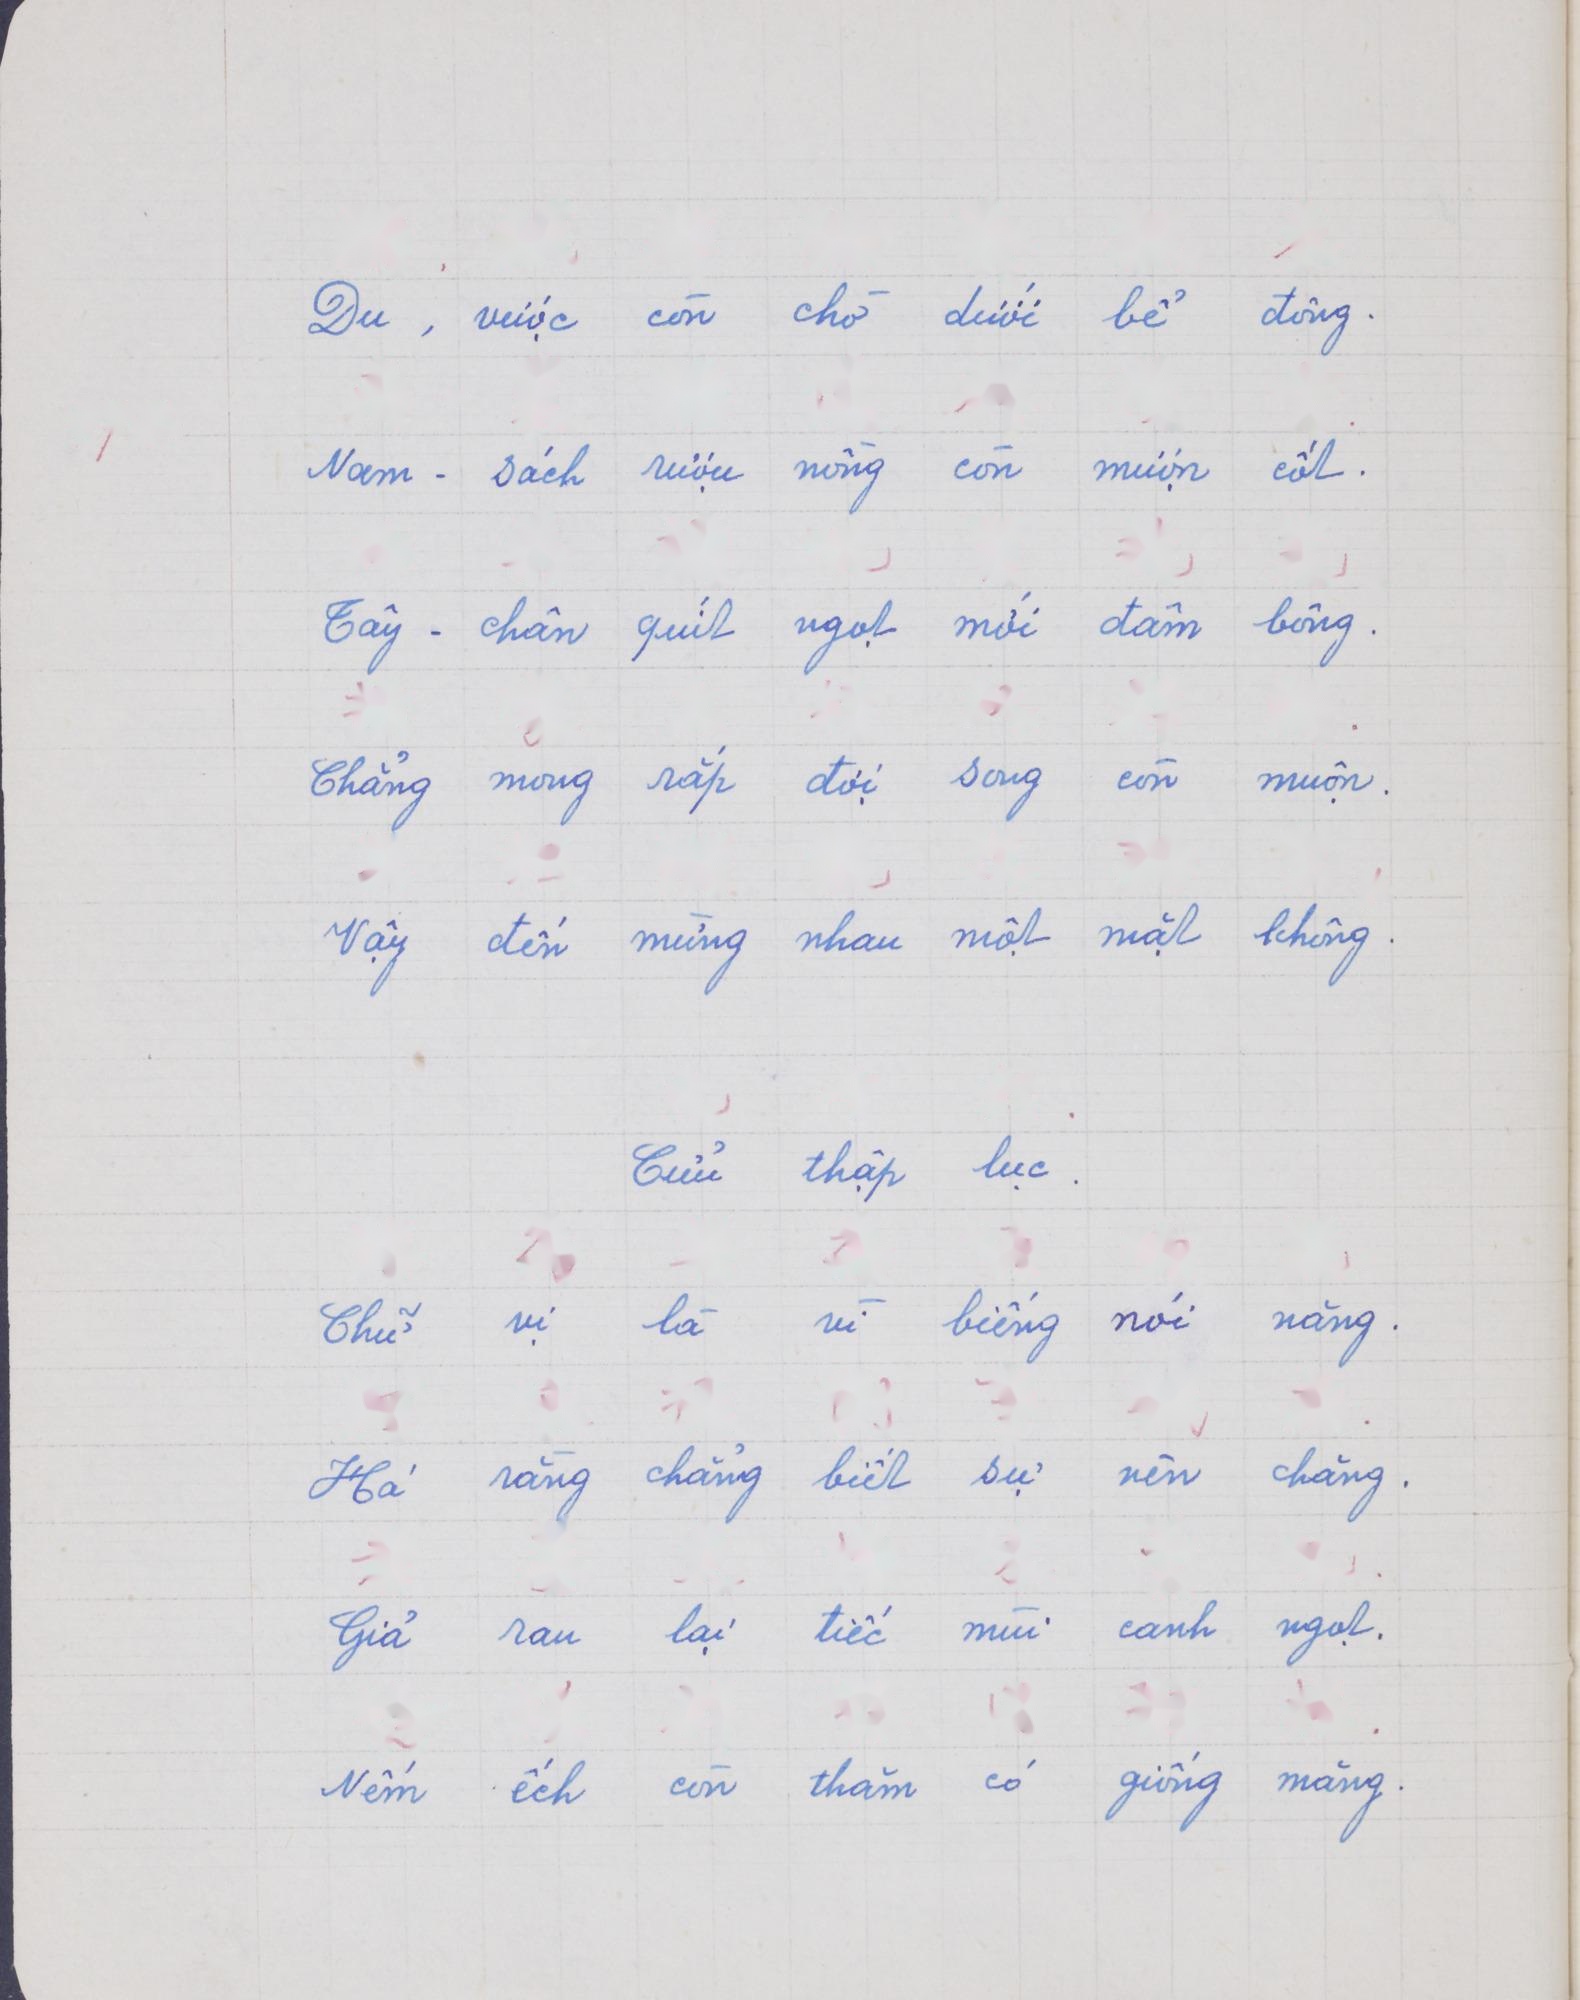 Du, vược còn chờ dưới bể đông.
Nam - sách rượu nồng còn mượn cốt.
Tây - chân quít ngọt mới đâm bông.
Chẳng mong rắp đợi song còn muộn.
Vậy đến mừng nhau một mặt không.
Cửu thập lục.
Chữ vị là vì biếng nói năng.
Há rằng chẳng biết sự nên chăng.
Giả rau lại tiếc mùi canh ngọt.
Nếm ếch còn thăm có giống măng.